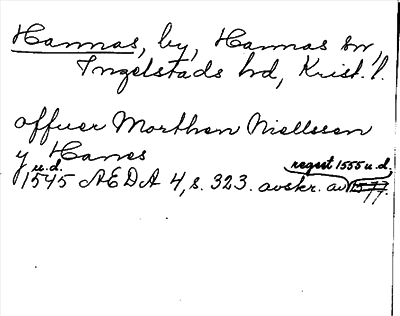 Hannas, by, Hannas sn,
Ingelstads hd, Krist. l.
offuer Morthen Niellssen
y Hanes
u.d. regest 1555 u.d.
1545 AEDA 4, s. 323. avskr. av 1577.